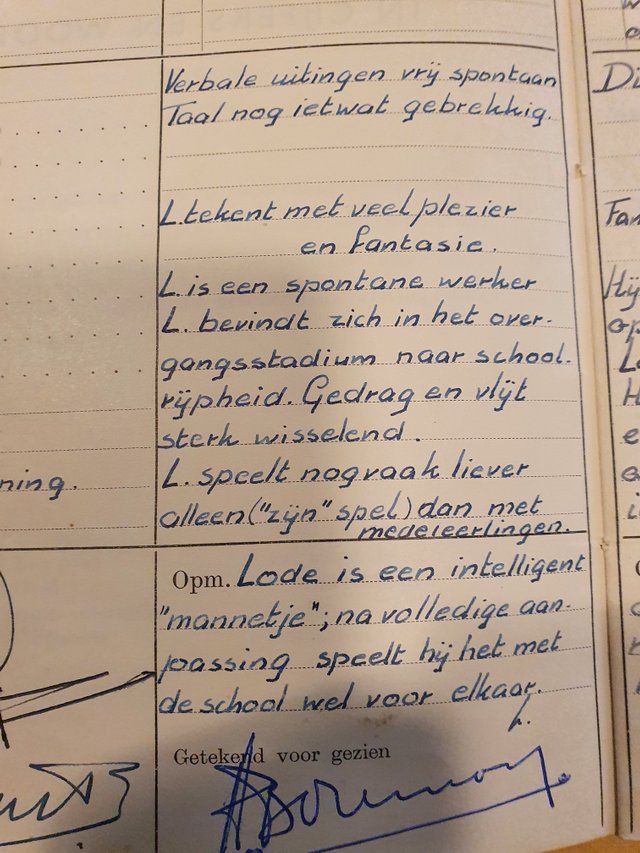 Verbale uitingen vrij spontaan
Taal nog ietwat gebrekkig.
L. tekent met veel plezier
en fantasie.
L. is een spontane werker
L. bevindt zich in het over-
gangsstadium naar school-
rijpheid. Gedrag en vlijt
sterk wisselend.
ning.
L. speelt nog vaak liever
alleen ("zijn" spel) dan met
medeleerlingen.
Opm. Lode is een intelligent
"mannetje"; na volledige aan-
passing speelt hij het met
de school wel voor elkaar.
L.
Getekend voor gezien
Di
Fan
Hij
op